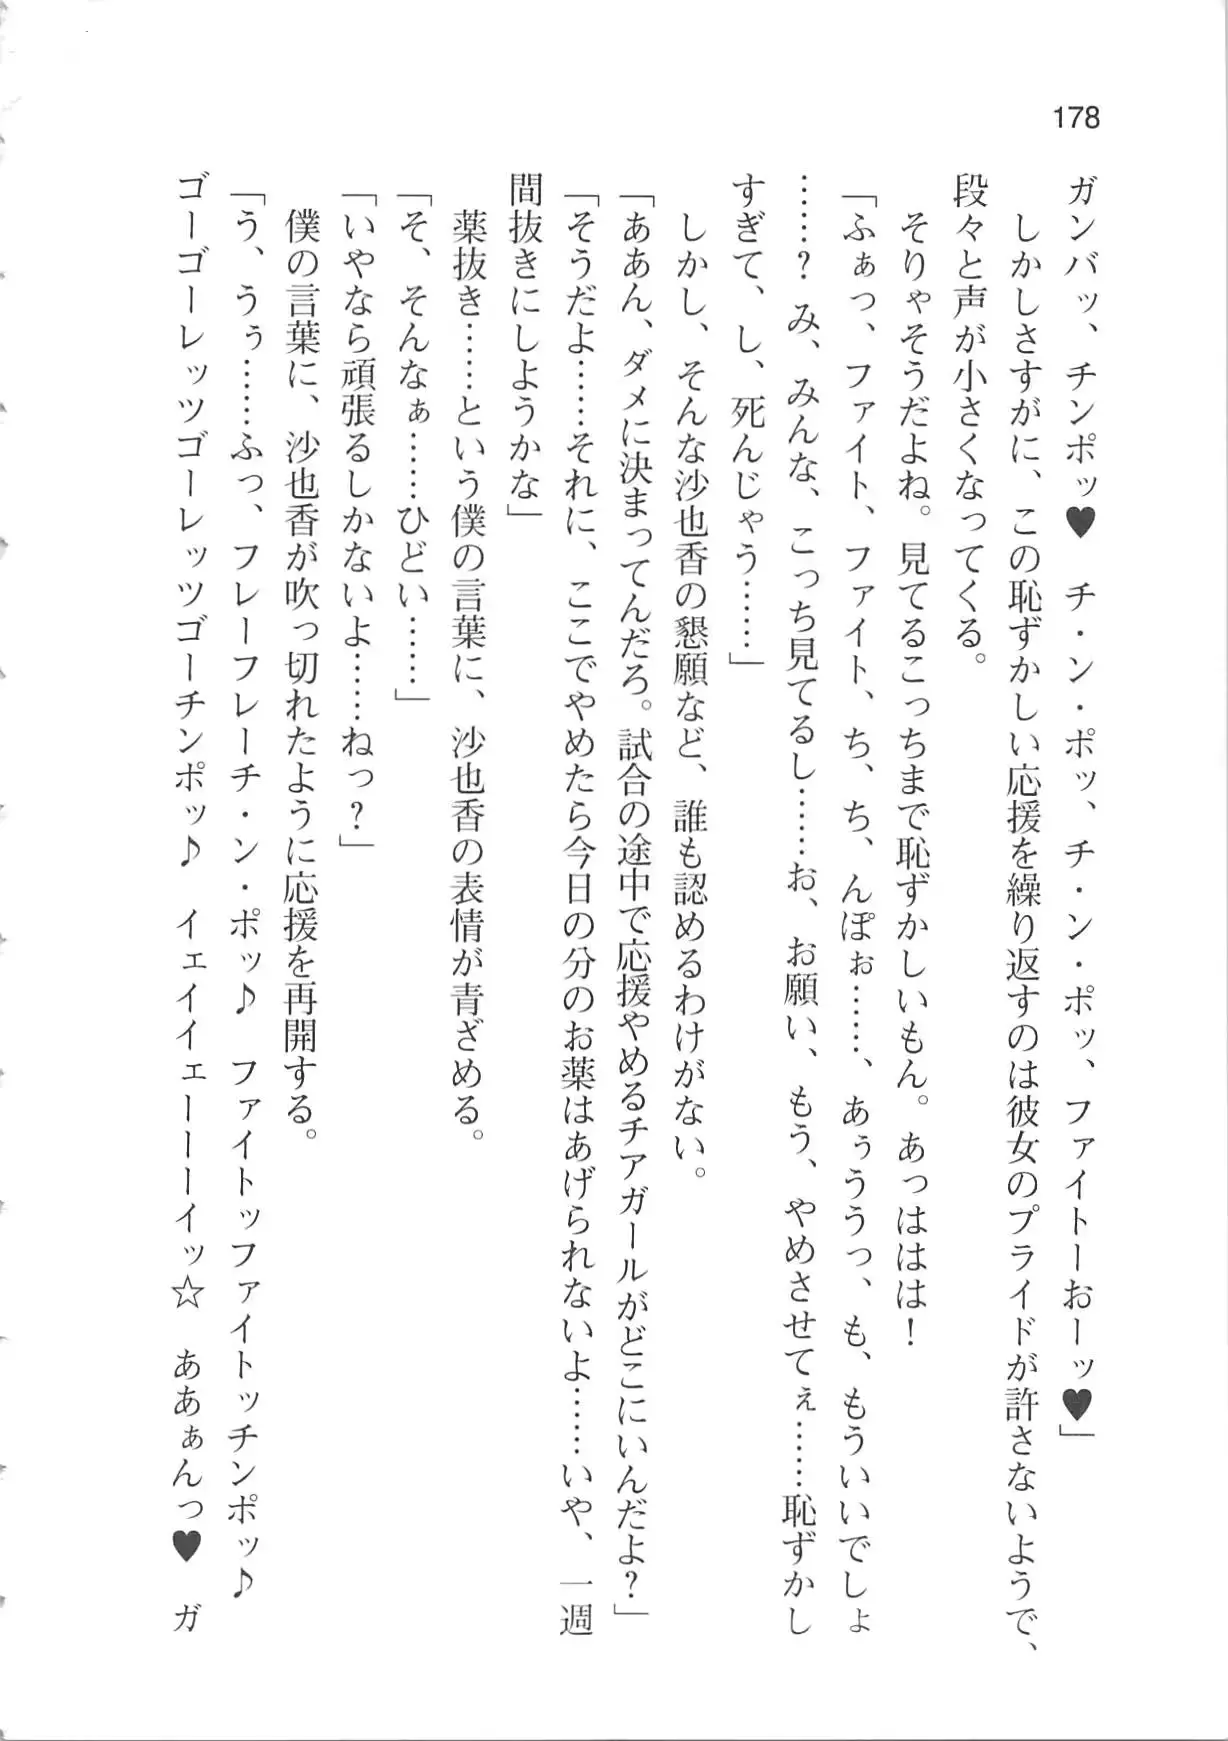 178
ガンバッ、チンポッ♥　チ・ン・ポッ、チ・ン・ポッ、ファイトーおーッ♥」
　しかしさすがに、この恥ずかしい応援を繰り返すのは彼女のプライドが許さないようで、
段々と声が小さくなってくる。
　そりゃそうだよね。見てるこっちまで恥ずかしいもん。あっははは！
「ふぁっ、ファイト、ファイト、ち、ち、んぽぉ……、あぅううっ、も、もういいでしょ
……？　み、みんな、こっち見てるし……お、お願い、もう、やめさせてぇ……恥ずかし
すぎて、し、死んじゃう……」
　しかし、そんな沙也香の懇願など、誰も認めるわけがない。
「ああん、ダメに決まってんだろ。試合の途中で応援やめるチアガールがどこにいんだよ？」
「そうだよ……それに、ここでやめたら今日の分のお薬はあげられないよ……いや、一週
間抜きにしようかな」
　薬抜き……という僕の言葉に、沙也香の表情が青ざめる。
「そ、そんなぁ……ひどい……」
「いやなら頑張るしかないよ……ねっ？」
　僕の言葉に、沙也香が吹っ切れたように応援を再開する。
「う、うぅ……ふっ、フレーフレーチ・ン・ポッ♪　ファイトッファイトッチンポッ♪
ゴーゴーレッツゴーレッツゴーチンポッ♪　イェイイェーーーイッ☆　ああぁんっ♥　ガ